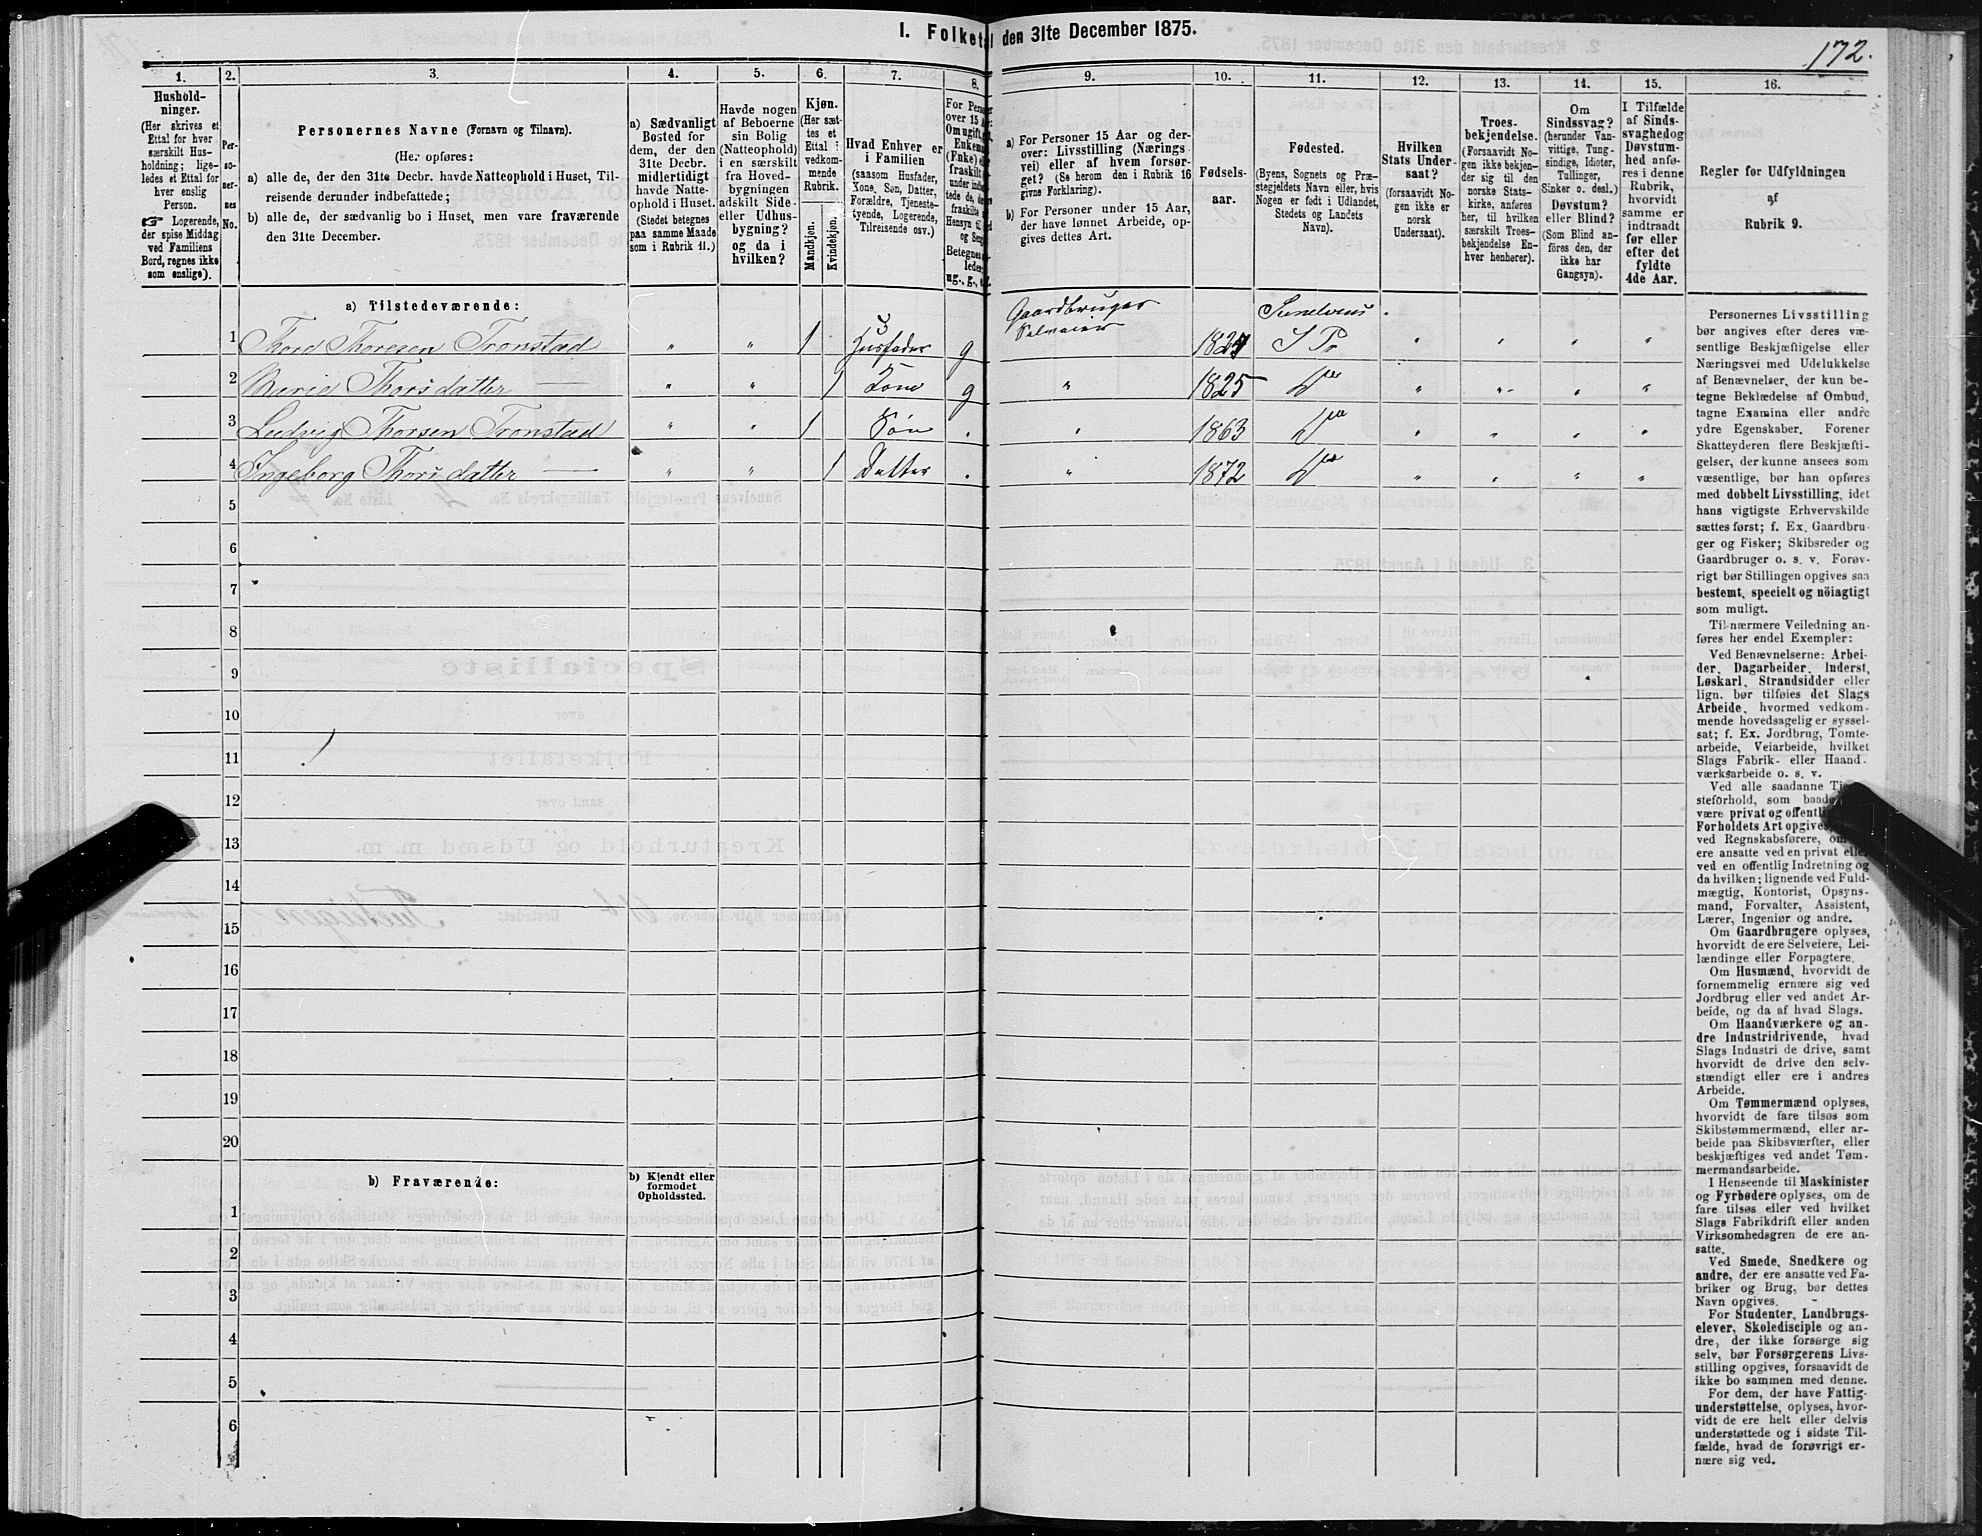 I. Folketal den 31te December 1875.
172.
1.
Hushold-
ninger.
(Her skrives et
Ettal for hver
særskilt Hus-
holdning; lige-
ledes et Ettal for
hver enslig
Person.
☞ Logerende,
der spise Middag
ved Familiens
Bord, regnes ikke
som enslige).
2.
Per-
so-
ner-
nes
No.
3.
Personernes Navne (Fornavn og Tilnavn).
(Her opføres:
a) alle de, der den 31te Decbr. havde Natteophold i Huset, Til-
reisende derunder indbefattede;
b) alle de, der sædvanlig bo i Huset, men vare fraværende
den 31te December.
4.
a) Sædvanligt
Bosted for
dem, der den
31te Decbr.
midlertidigt
havde Natte-
ophold i Huset.
(Stedet betegnes
paa samme Maade
som i Rubrik 11.)
5.
Havde nogen
af Beboerne
sin Bolig
(Natteophold)
i en særskilt
fra Hoved-
bygningen
adskilt Side-
eller Udhus-
bygning?
og da i
hvilken?
6.
Kjøn.
(Her sæt-
tes et
Ettal i
vedkom-
mende
Rubrik.
Mandkjøn.
Kvindekjøn.
7.
Hvad Enhver er
i Familien
(saasom Husfader,
Kone, Søn, Datter,
Forældre, Tjeneste-
tyende, Logerende,
Tilreisende osv.)
8.
9.
a) For Personer 15 Aar og der-
over: Livsstilling (Nærings
vei) eller af hvem forsør-
get? (Se herom den i Rubrik 16
givne Forklaring).
b) For Personer under 15 Aar,
der have lønnet Arbeide, op-
gives dettes Art.
10.
Fødsels-
aar.
11.
Fødested.
(Byens, Sognets og Præ-
stegjeldets Navn eller, hvis
Nogen er født i Udlandet,
Stedets og Landets
Navn).
12.
Hvilken
Stats Under-
saat?
(forsaavidt No-
gen ikke er
norsk
Undersaat).
13.
Troes-
bekjendelse.
(Forsaavidt No-
gen ikke bekjen-
der sig til den
norske Stats-
kirke, anføres
her, til hvilken
særskilt Troes-
bekjendelse En-
hver henhører).
14.
Om
Sindssvag?
(herunder Van-
vittige, Tung-
sindige, Idioter,
Tullinger,
Sinker o. desl.)
Døvstum?
eller Blind?
(Som Blind an-
føres den, der
ikke har
Gangsyn).
15.
I Tilfælde
af Sinds-
svaghedog
Døvstum-
hed anfø-
res i denne
Rubrik,
hvorvidt
samme er
indtraadt
før eller
efter det
fyldte
4de Aar.
16.
Regler for Udfyldningen
af
Rubrik 9.
a) Tilstedeværende:
1 Thord Thoresen Tronstad " " 1 Husfader g Gaardbruger Selveier 1824 Sunelvens S Pr " " " "
2 Marie Thorsdatter — " " 1 Kone g " 1825 Do " " " "
3 Ludvig Thorsen Tronstad " " 1 Søn . " 1863 Do " " " "
4 Ingeborg Thorsdatter — " " 1 Datter . " 1872 Do " " " "
5
6
7
8
9
10
11
12
13
14
15
16
17
18
19
20
b) Fraværende:
b) Kjendt eller
formodet
Opholdssted.
1
2
3
4
5
6
Personernes Livsstilling
bør angives efter deres væ-
sentlige Beskjæftigelse eller
Næringsvei med Udelukkelse
af Benævnelser, der kun be-
tegne Beklædelse af Ombud,
tagne Examina eller andre
ydre Egenskaber. Forener
Skatteyderen flere Beskjæfti-
gelser, der kunne ansees som
væsentlige, bør han opføres
med dobbelt Livsstilling, idet
hans vigtigste Erhvervskilde
sættes først; f. Ex. Gaardbru-
ger og Fisker; Skibsreder og
Gaardbruger o. s. v. Forøv-
rigt bør Stillingen opgives saa
bestemt, specielt og nöiagtigt
som muligt.
Til nærmere Veiledning an-
føres her endel Exempler:
Ved Benævnelserne: Arbei-
der, Dagarbeider, Inderst,
Løskarl, Strandsidder eller
lign. bør tilføies det Slags
Arbeide, hvormed vedkom-
mende hovedsagelig er syssel-
sat; f. Ex. Jordbrug, Tomte-
arbeide, Veiarbeide, hvilket
Slags Fabrik- eller Haand-
værksarbeide o. s. v.
Ved alle saadanne
steforhold, som
være privat og
Forholdets Art opgives,
ved Regnskabsførere,
ere ansatte ved en privat
ved en offentlig Indretning og
da hvilken; lignende ved Fuld-
mægtig, Kontorist, Opsyns-
mand, Forvalter, Assistent,
Lærer, Ingeniør og andre.
Om Gaardbrugere oplyses,
hvorvidt de ere Selveiere, Lei-
lændinge eller Forpagtere.
Om Husmænd, hvorvidt de
fornemmelig ernære sig ved
Jordbrug eller ved andet Ar-
beide, og da af hvad Slags.
Om Haandværkere og an-
dre Industridrivende, hvad
Slags Industri de drive, samt
hvorvidt de drive den selv-
stændigt eller ere i andres
Arbeide.
Om Tømmermænd oplyses,
hvorvidt de fare tilsøs som
Skibstømmermænd, eller ar-
beide paa Skibsværfter, eller
beskjæftiges ved andet Tøm-
mermandsarbeide.
I Henseende til Maskinister
og Fyrbødere oplyses, om de
fare tilsøs eller ved hvilket
Slags Fabrikdrift eller anden
Virksomhedsgren de ere an-
satte.
Ved Smede, Snedkere og
andre, der ere ansatte ved Fa-
briker og Brug, bør dettes
Navn opgives.
For Studenter, Landbrugs-
elever, Skoledisciple og an-
dre, der ikke forsørge sig
selv, bør Forsørgerens Livs-
stilling opgives, forsaavidt de
ikke bo sammen med denne.
For dem, der have Fattig-
understøttelse, oplyses, hvor-
vidt de ere helt eller delvis
understøttede og i sidste Til-
fælde, hvad de forøvrigt er-
nære sig ved.